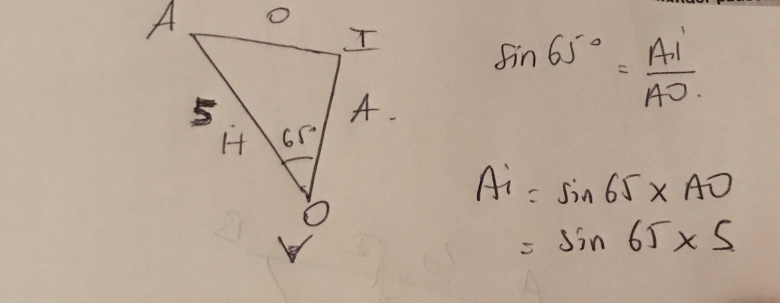 A
O
I
5
H
65°
A.
O
sin 65° = Ai / AO.
Ai = sin 65 x AO
= sin 65 x 5